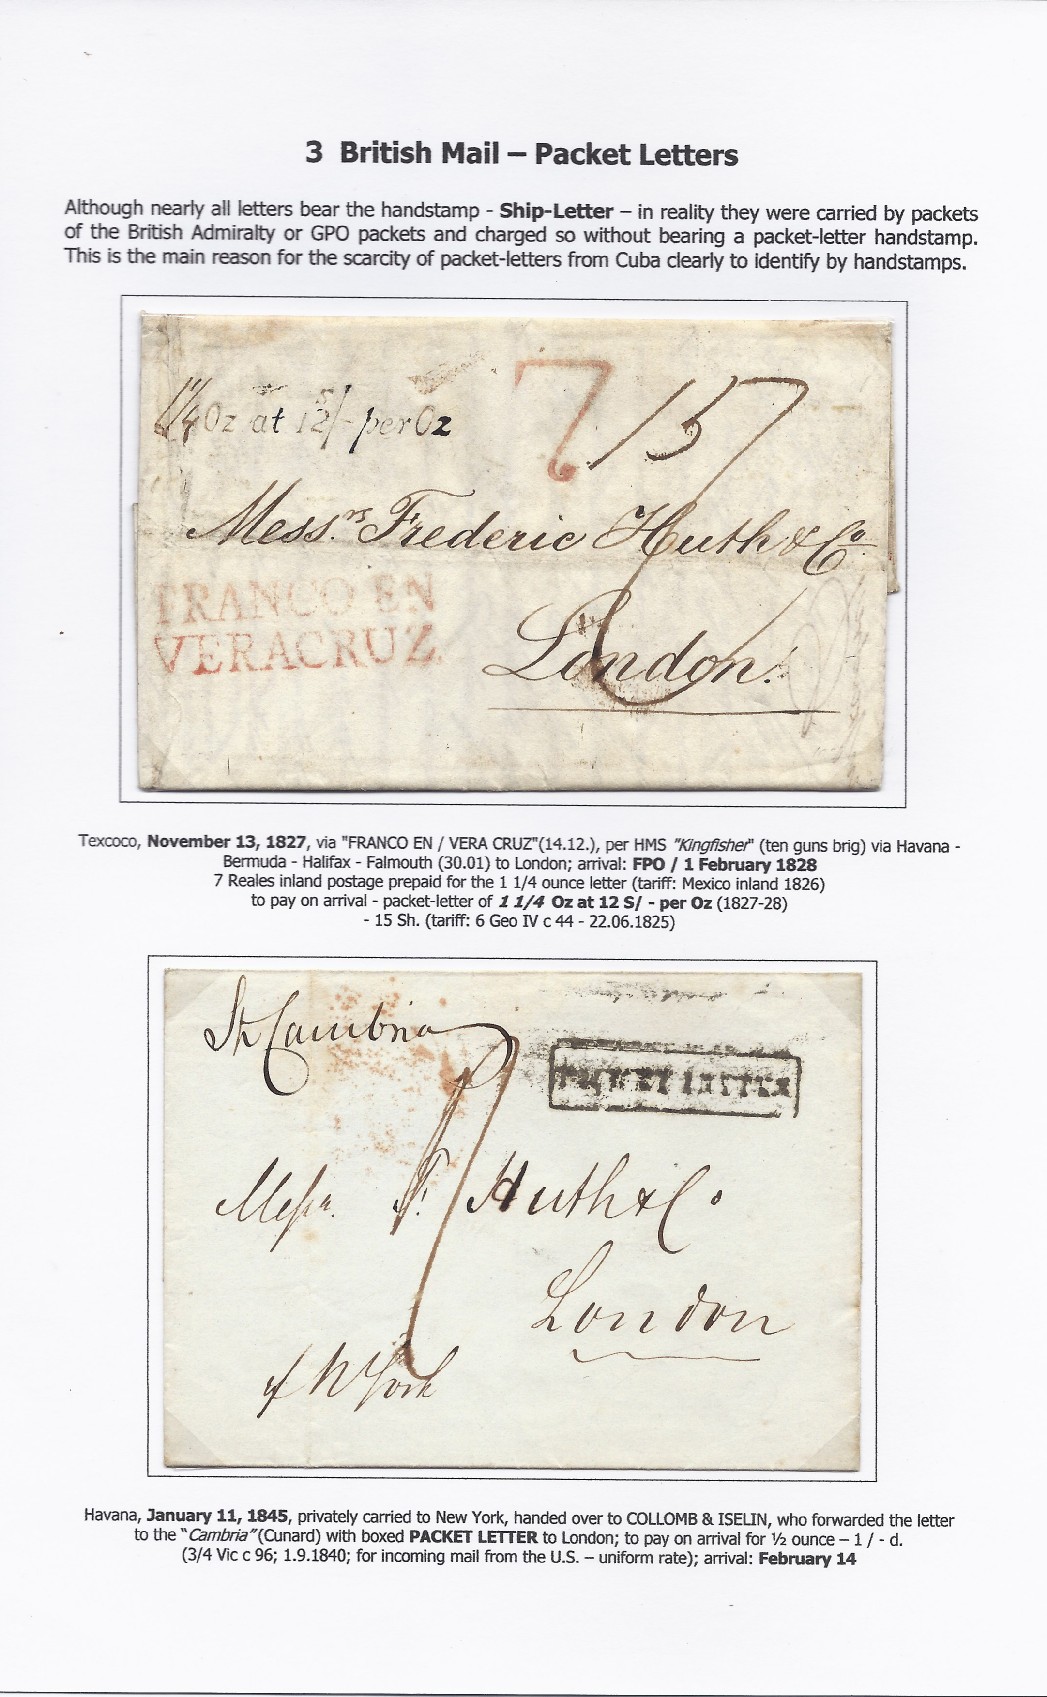 3 British Mail – Packet Letters
Although nearly all letters bear the handstamp - Ship-Letter – in reality they were carried by packets
of the British Admiralty or GPO packets and charged so without bearing a packet-letter handstamp.
This is the main reason for the scarcity of packet-letters from Cuba clearly to identify by handstamps.
1 1/4 Oz at 12 S/- per Oz
7 15/
Messrs. Frederic Huth & Co.
FRANCO EN
VERACRUZ
London.
Texcoco, November 13, 1827, via "FRANCO EN / VERA CRUZ"(14.12.), per HMS "Kingfisher" (ten guns brig) via Havana -
Bermuda - Halifax - Falmouth (30.01) to London; arrival: FPO / 1 February 1828
7 Reales inland postage prepaid for the 1 1/4 ounce letter (tariff: Mexico inland 1826)
to pay on arrival - packet-letter of 1 1/4 Oz at 12 S/ - per Oz (1827-28)
- 15 Sh. (tariff: 6 Geo IV c 44 - 22.06.1825)
Cambria
PACKET LETTER
Messrs. F. Huth & Co
London
N York
Havana, January 11, 1845, privately carried to New York, handed over to COLLOMB & ISELIN, who forwarded the letter
to the "Cambria"(Cunard) with boxed PACKET LETTER to London; to pay on arrival for ½ ounce – 1 / - d.
(3/4 Vic c 96; 1.9.1840; for incoming mail from the U.S. – uniform rate); arrival: February 14